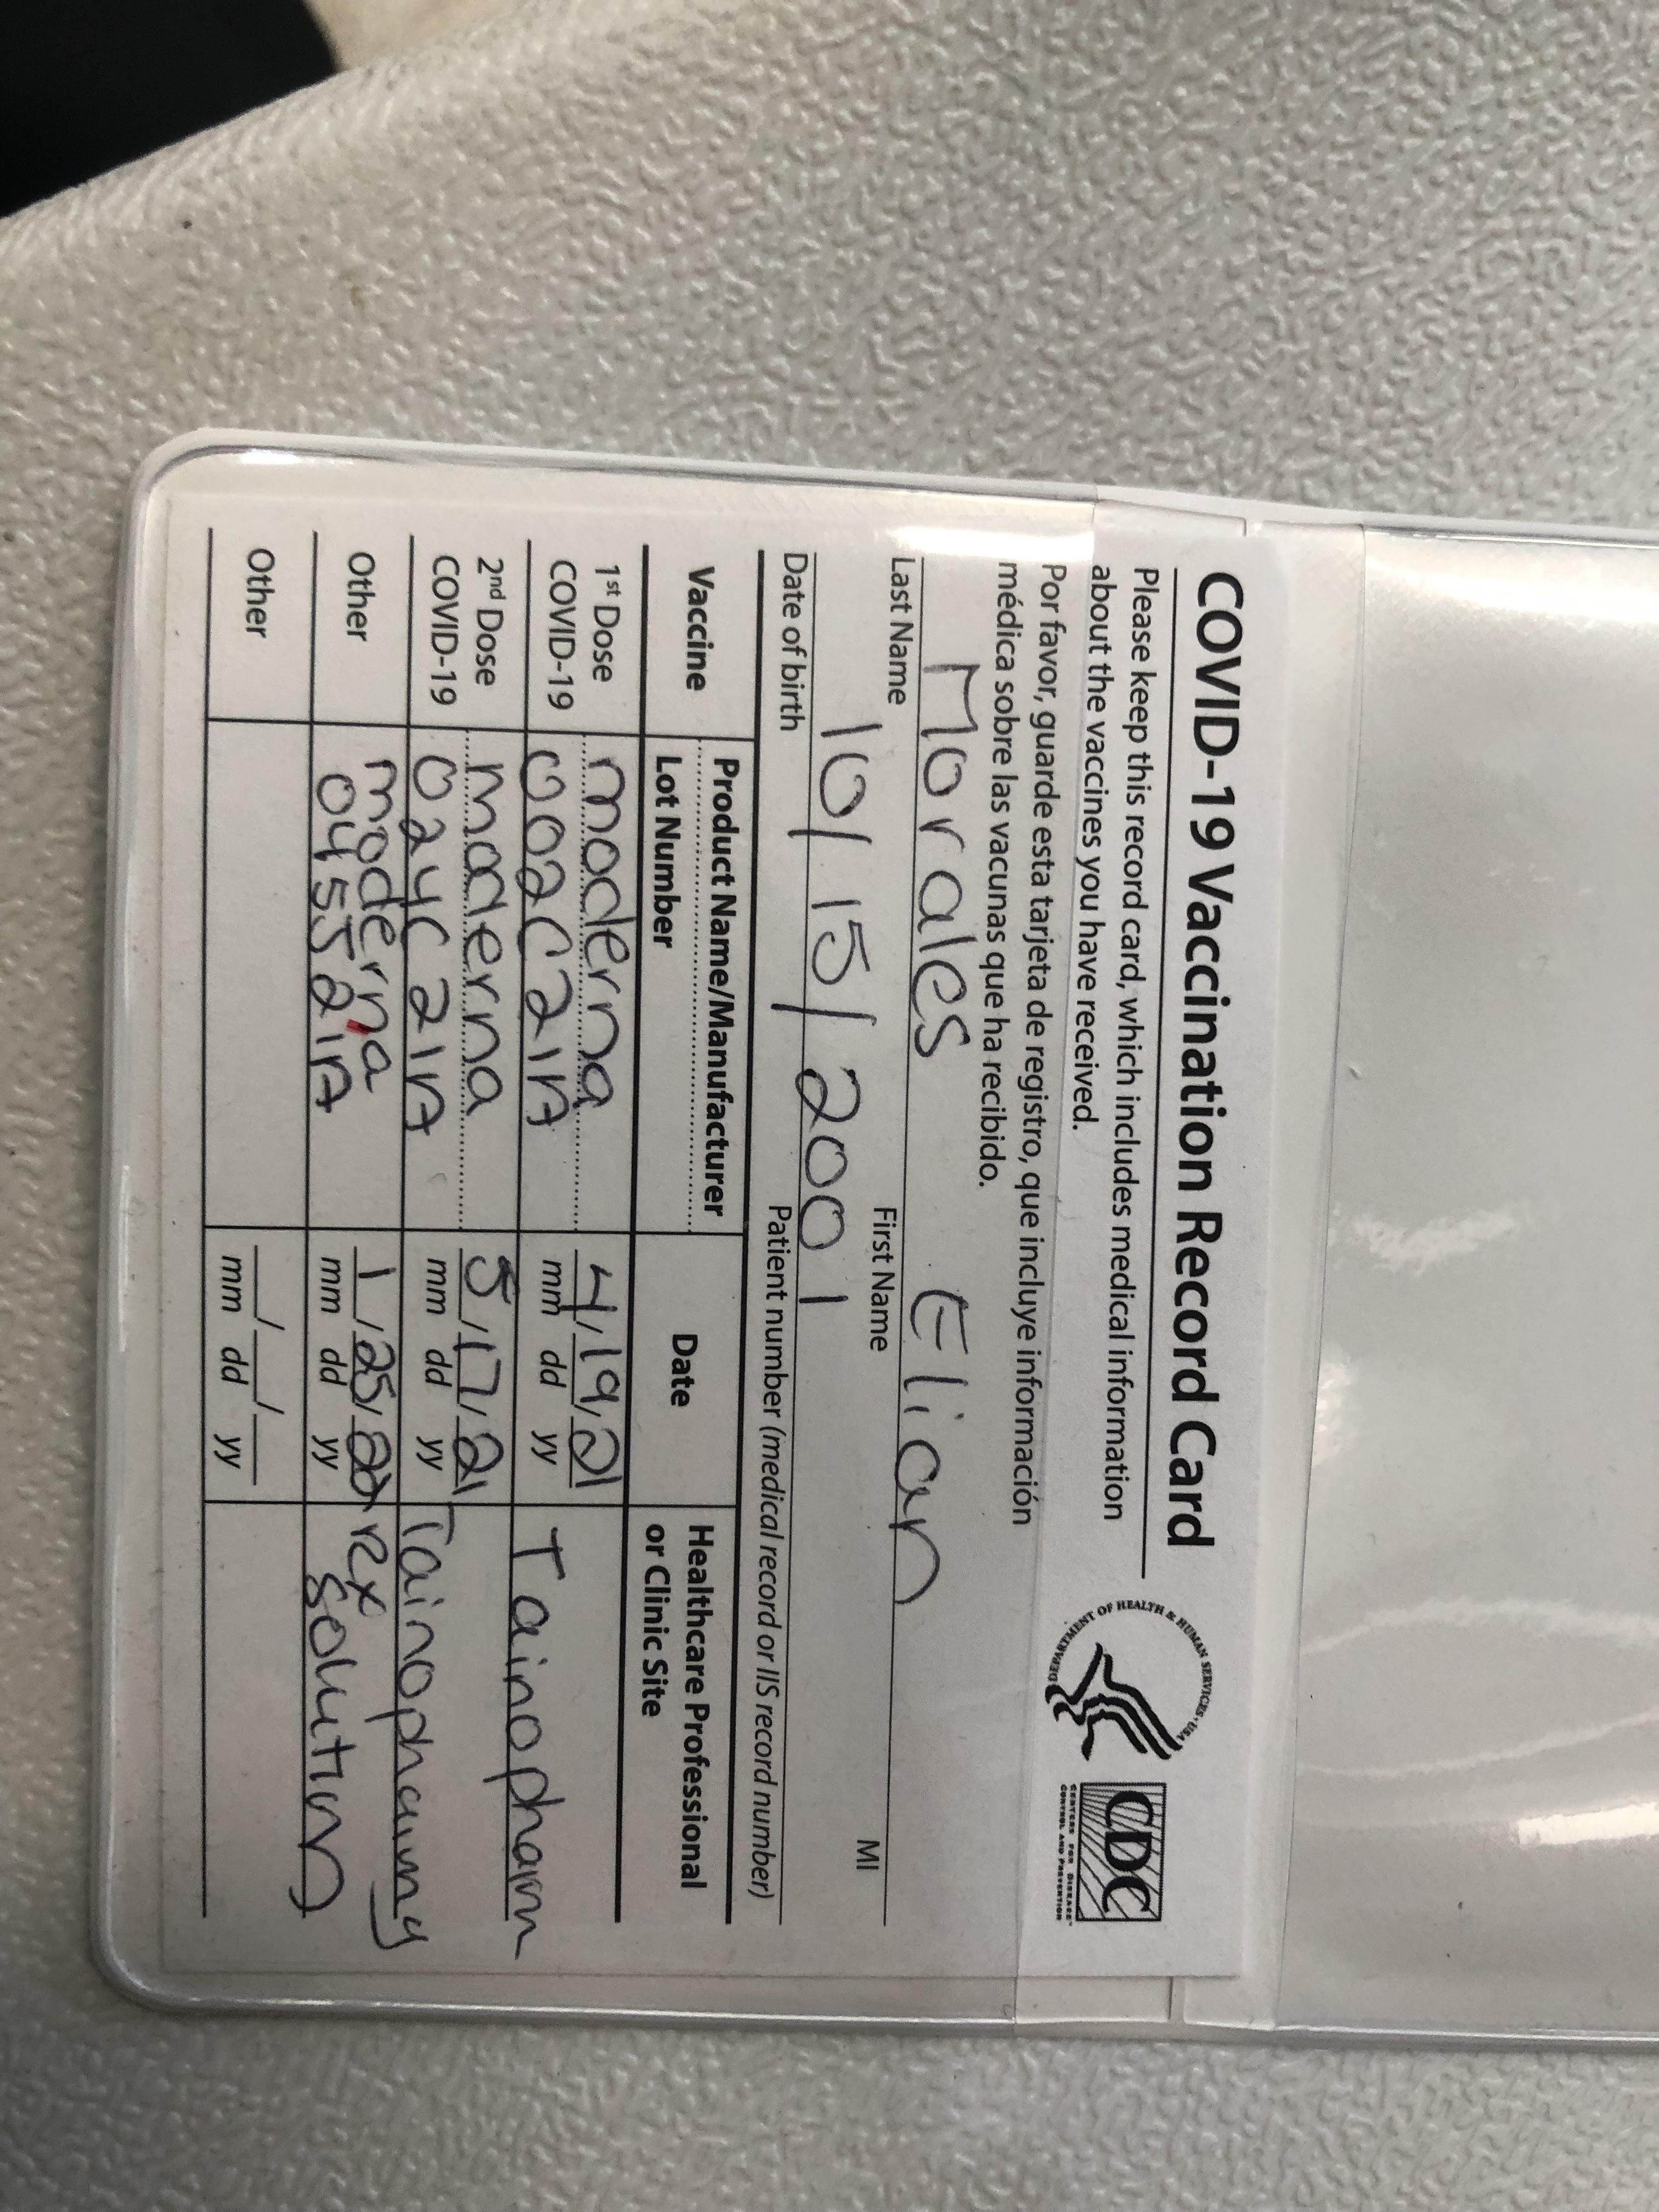 COVID-19 Vaccination Record Card
Please keep this record card, which includes medical information
about the vaccines you have received.
Por favor, guarde esta tarjeta de registro, que incluye información
médica sobre las vacunas que ha recibido.
DEPARTMENT OF HEALTH & HUMAN SERVICES, USA
CDC
CENTERS FOR DISEASE
CONTROL AND PREVENTION
Morales Elian
Last Name First Name MI
10/15/2001
Date of birth Patient number (medical record or IIS record number)
Vaccine Product Name/Manufacturer Date Healthcare Professional
Lot Number or Clinic Site
1st Dose moderna 4/19/21
COVID-19 002C21A mm dd yy Tainopharm
2nd Dose moderna 5/17/21
COVID-19 024C21A mm dd yy
Other moderna 1/25/22 rx
04552 1A mm dd yy solution
Other __/__/__
mm dd yy